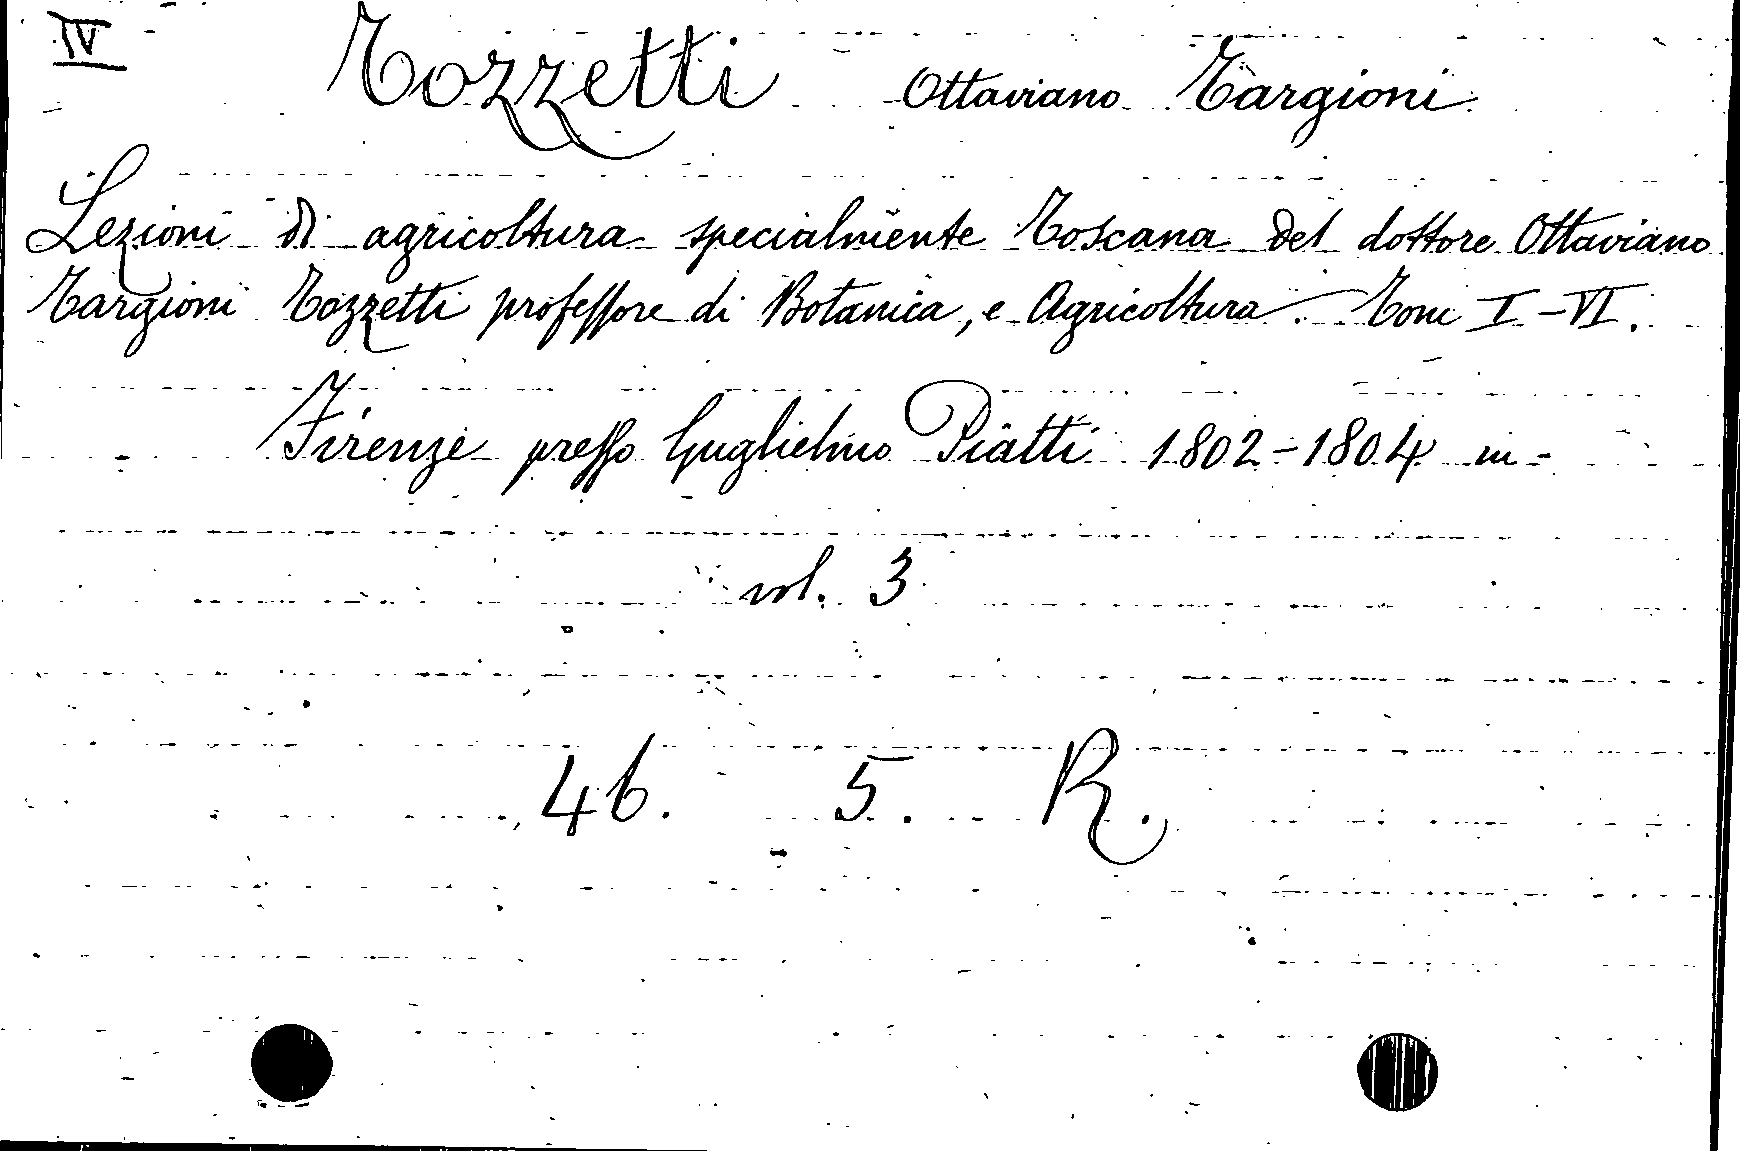 IV
Tozzetti Ottaviano Targioni
Lezioni di agricoltura specialmente Toscana del dottore Ottaviano
Targioni Tozzetti professore di Botanica, e Agricoltura. Tomi I-VI.
Firenze presso Guglielmo Piatti 1802-1804 in-
vol. 3
46. 5. R.